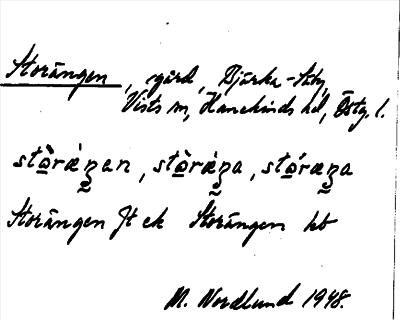 Storängen, gård, Bjärka-Säby,
Vists sn, Hanekinds hd, Östg. l.
stò̱ræ̀ŋan, stò̱ræ̀ŋa, stó̱ræŋa
Storängen Jt ek Storängen hb
M. Nordlund 1948.